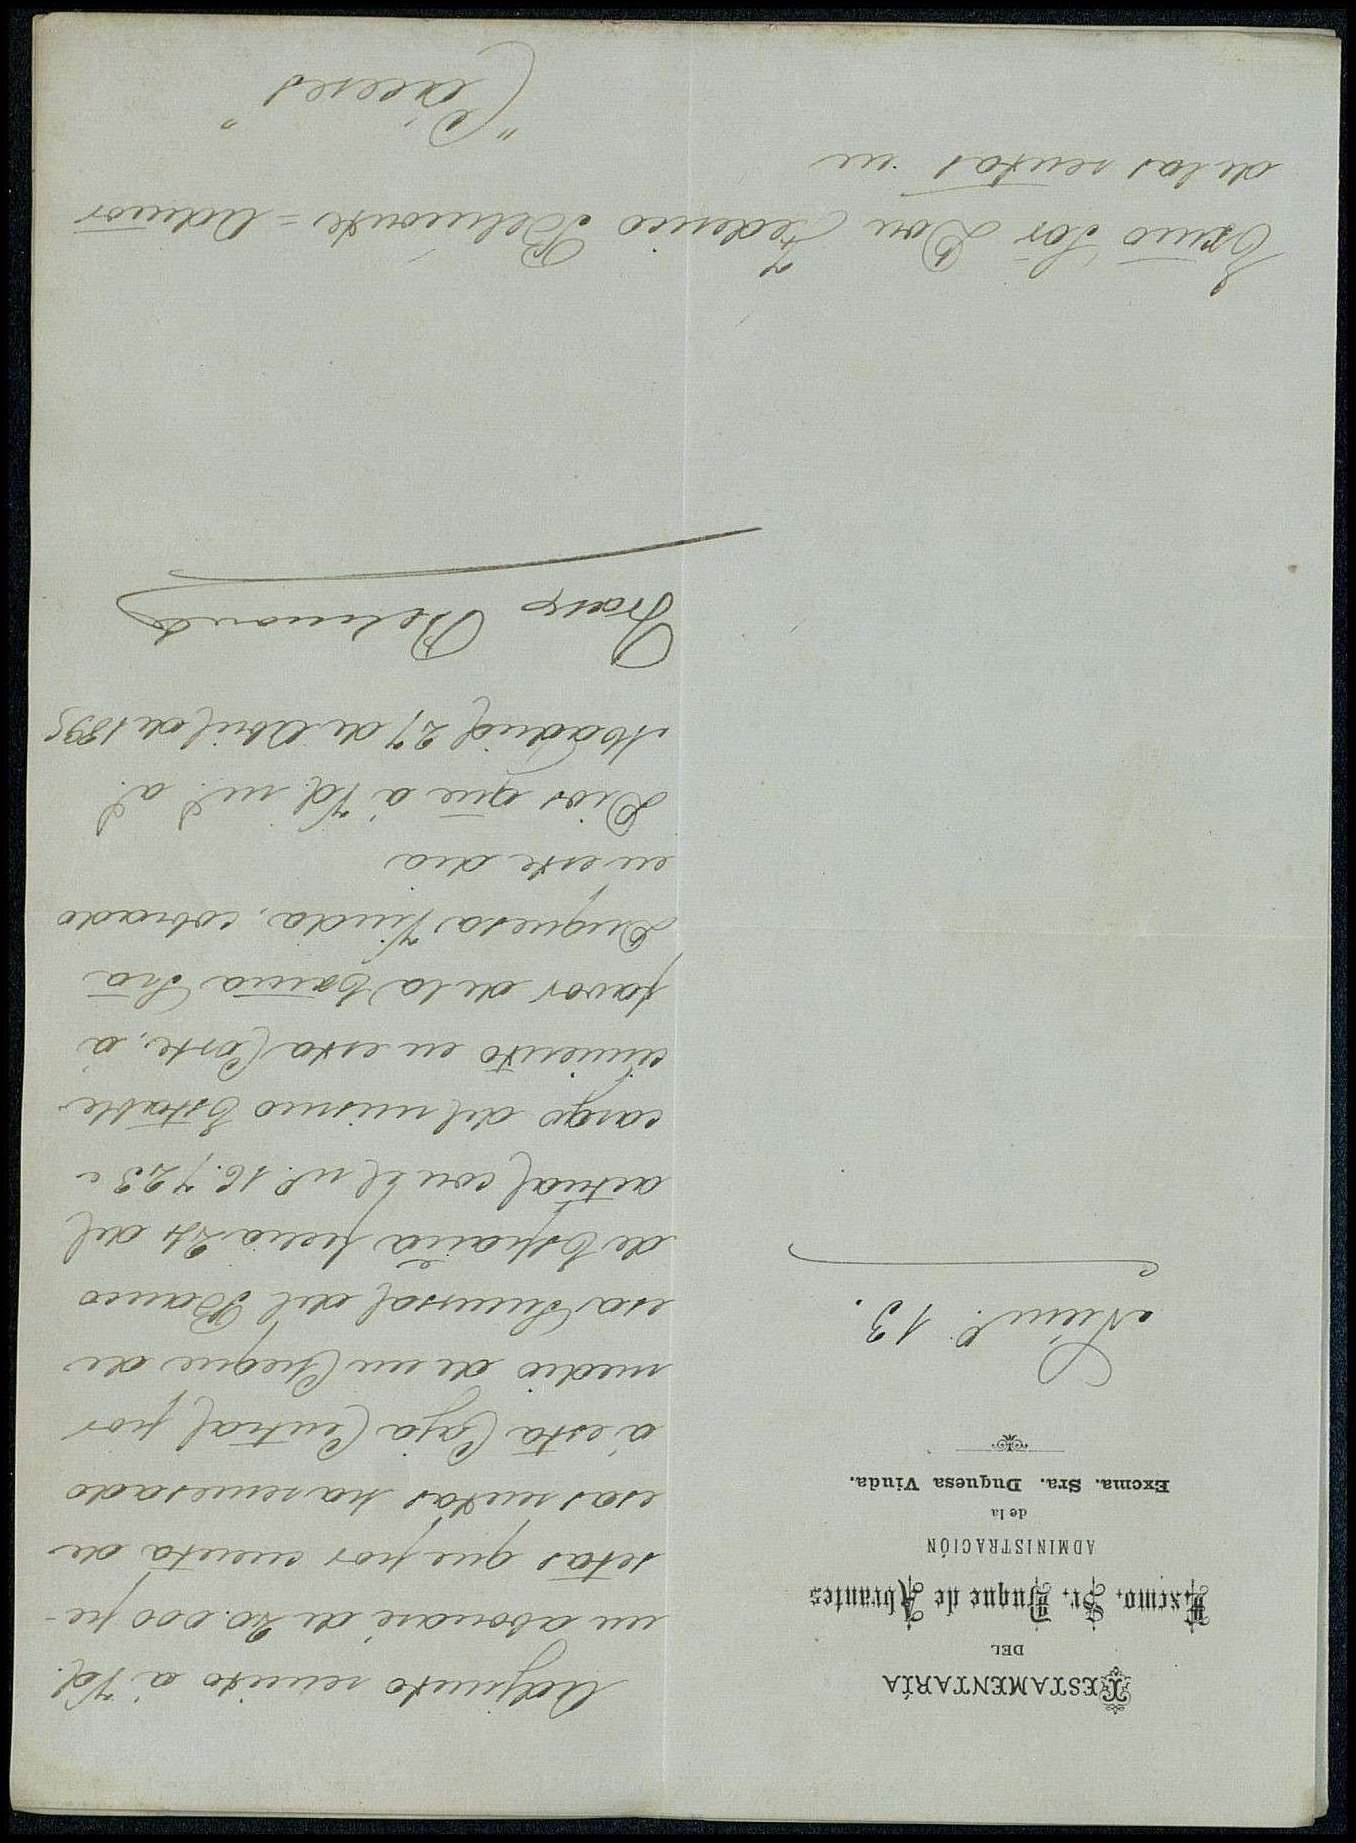 TESTAMENTARÍA
DEL
Excmo. Sr. Duque de Abrantes
ADMINISTRACIÓN
de la
Excma. Sra. Duquesa Viuda.
Núm. 13.
Adjunto remito á Vd.
un abonaré de 20.000 pe-
setas que por cuenta de
esas rentas ha remesado
á esta Caja Central por
medio de un Cheque de
esa Sucursal del Banco
de España fecha 24 del
actual con el nº. 16.723 c
cargo del mismo Estable-
cimiento en esta Corte, á
favor de la Exma Sra
Duquesa Viuda, cobrado
en este dia
Dios gue á Vd. m.s a.s
Madrid 27 de Abril de 1895
Franco Belmonte
Exmo Sor Don Federico Belmonte = Admor
de las rentas en
"Cáceres"